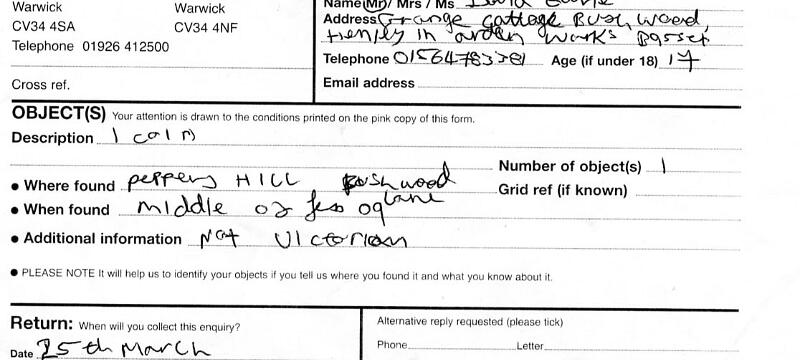 Warwick
CV34 4SA
Telephone 01926 412500
Warwick
CV34 4NF
Cross ref.
Name (Mr) / Mrs / Ms
Address Grange Cottage Bushwood,
Henley in arden Warks
Telephone 01564783381 Age (if under 18) 17
Email address
OBJECT(S) Your attention is drawn to the conditions printed on the pink copy of this form.
Description 1 coin
Number of object(s) 1
• Where found peppers HILL Bushwood lane
Grid ref (if known)
• When found middle of feb 09
• Additional information Not Victorian
• PLEASE NOTE It will help us to identify your objects if you tell us where you found it and what you know about it.
Return: When will you collect this enquiry?
Date 25th March
Alternative reply requested (please tick)
Phone Letter